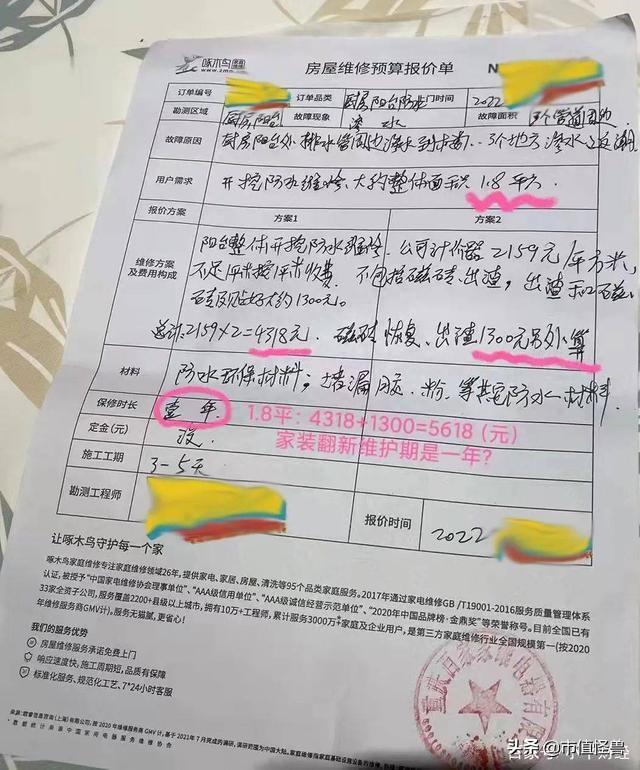 啄木鸟
房屋维修预算报价单
N
订单编号
订单品类
厨房阳台防水
门时间
2022
勘测区域
厨房阳台
故障现象
渗水
故障面积
故障原因
厨房阳台外排水管周边渗水到楼
3个地方渗水
用户需求
开挖防水维修、大约整体面积1.8平方
报价方案
方案1
方案2
维修方案
及费用构成
阳台整体开挖防水维修.公司计价器2159元/平方米,
不足1平米按1平米收费。不包括磁砖、出渣,出渣和磁
砖
1300元。
总计:2159×2=4318元.磁砖恢复、出渣1300元另外算
材料
防水环保材料;堵漏
胶.粉、等
防水材料
保修时长
壹年
1.8平:4318+1300=5618(元)
家装翻新维护期是一年?
定金(元)
没
施工工期
3-5天
勘测工程师
报价时间
2022
让啄木鸟守护每一个家
啄木鸟家庭维修专注家庭维修领域26年,提供家电、家居、房屋、清洗等95个品类家庭服务。2017年通过家电维修GB/T19001-2016服务质量管理体系
认证,被授予“中国家电维修协会理事单位”、“AAA级信用单位”、“AAA级诚信经营示范单位”、“2020年中国品牌榜·金鼎奖”等荣誉称号。目前全国已有
33家全资子公司,服务覆盖2200+县级以上城市,拥有10万+工程师,累计服务3000万+家庭及企业用户,是第三方家庭维修行业全国规模第一(按2020
年维修服务商GMV计)。服务无猫腻,更省心!
我们的服务优势
房屋维修服务承诺免费上门
响应速度快,施工周期短,品质有保障
标准化服务、规范化工艺、7*24小时客服
头条@市值怪兽